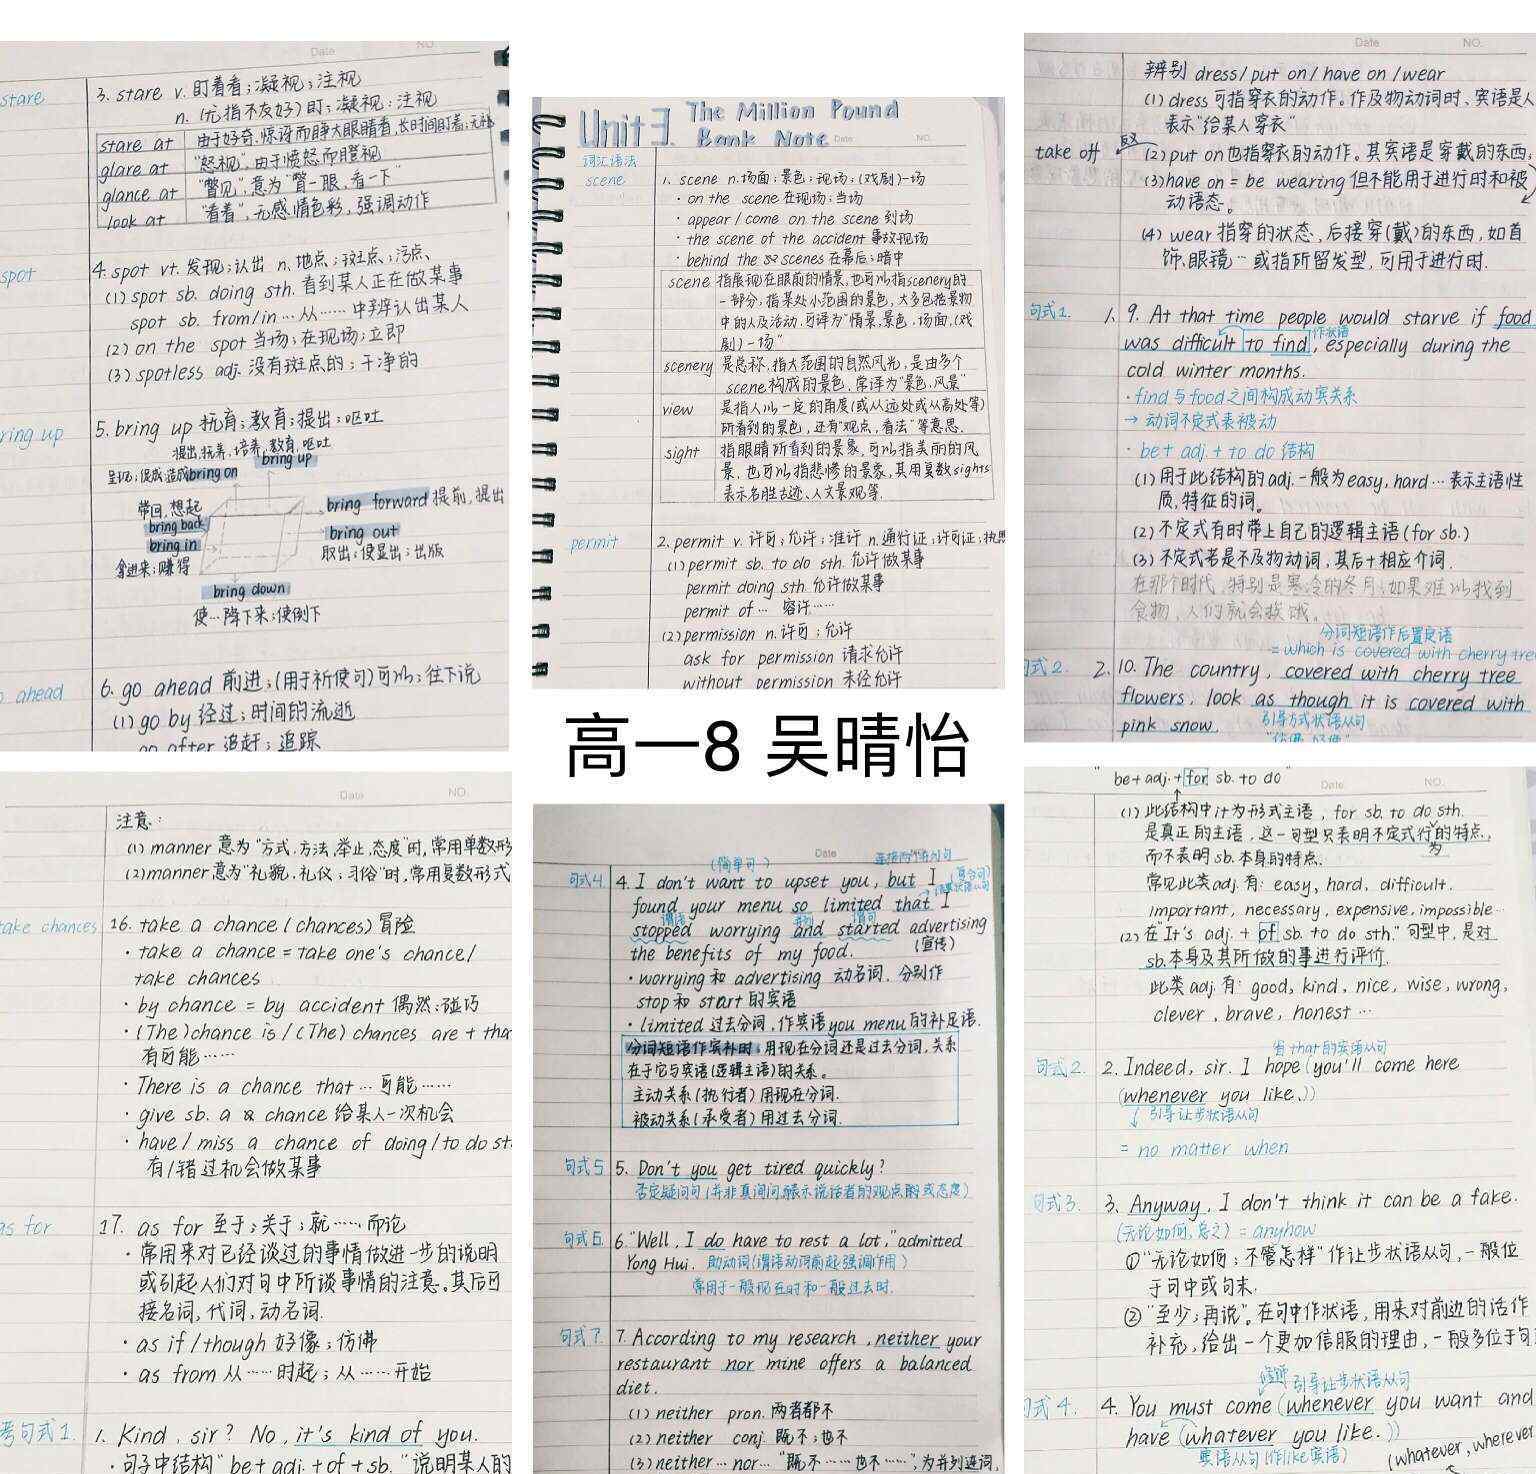 Date NO.
stare
3. stare v. 盯着看;凝视;注视
n. (尤指不友好)盯;凝视;注视
stare at 由于好奇.惊讶而睁大眼睛看,长时间盯着;无礼
glare at "怒视",由于愤怒而瞪视
glance at "瞥见",意为"瞥一眼,看一下"
look at "看着",无感情色彩,强调动作
spot
4. spot vt. 发现;认出 n. 地点;斑点;污点、
(1) spot sb. doing sth. 看到某人正在做某事
spot sb. from/in … 从…… 中辨认出某人
(2) on the spot 当场;在现场;立即
(3) spotless adj. 没有斑点的;干净的
ring up
5. bring up 抚育;教育;提出;呕吐
提出,抚养,培养,教育,呕吐
bring up
呈现;促成;造成 bring on
带回,想起
bring back
bring forward 提前,提出
bring in
bring out
取出;使显出;出版
拿进来;赚得
bring down
使…降下来;使倒下
o ahead
6. go ahead 前进;(用于祈使句)可以;往下说
(1) go by 经过;时间的流逝
go after 追赶;追踪
Unit 3. The Million Pound
Bank Note Date NO.
词汇语法
scene
1. scene n.场面;景色;现场;(戏剧)一场
· on the scene 在现场;当场
· appear / come on the scene 到场
· the scene of the accident 事故现场
· behind the scenes 在幕后;暗中
scene 指展现在眼前的情景,也可以指scenery的
一部分,指某处小范围的景色,大多包括景物
中的人及活动,可译为"情景,景色,场面,(戏
剧)一场"
scenery 是总称,指大范围的自然风光,是由多个
scene构成的景色,常译为"景色,风景"
view 是指人从一定的角度(或从远处或从高处等)
所看到的景色,还有"观点,看法"等意思.
sight 指眼睛所看到的景象,可以指美丽的风
景,也可以指悲惨的景象,其用复数sights
表示名胜古迹、人文景观等.
permit
2. permit v. 许可;允许;准许 n.通行证;许可证;执照
(1) permit sb. to do sth. 允许做某事
permit doing sth. 允许做某事
permit of … 容许……
(2) permission n. 许可;允许
ask for permission 请求允许
without permission 未经允许
Date NO.
辨别 dress / put on / have on / wear
(1) dress 可指穿衣的动作。作及物动词时、宾语是人
表示"给某人穿衣"
take off 反义
(2) put on 也指穿衣的动作。其宾语是穿戴的东西;
(3) have on = be wearing 但不能用于进行时和被
动语态。
(4) wear 指穿的状态,后接穿(戴)的东西,如首
饰、眼镜…或指所留发型,可用于进行时.
句式1.
1. 9. At that time people would starve if food
作状语
was difficult to find, especially during the
cold winter months.
· find 与 food 之间构成动宾关系
→ 动词不定式表被动
· be + adj. + to do 结构
(1) 用于此结构的 adj. 一般为 easy, hard … 表示主语性
质,特征的词。
(2) 不定式有时带上自己的逻辑主语 (for sb.)
(3) 不定式若是不及物动词,其后+相应介词.
在那个时代,特别是寒冷的冬月,如果难以找到
食物,人们就会挨饿。
分词短语作后置定语
= which is covered with cherry tree
句式2.
2. 10. The country, covered with cherry tree
flowers, look as though it is covered with
pink snow. 引导方式状语从句
"仿佛,好像"
高一8 吴晴怡
Date NO.
注意:
(1) manner 意为"方式,方法,举止,态度"时,常用单数形
(2) manner 意为"礼貌,礼仪;习俗"时,常用复数形式
take chances
16. take a chance (chances) 冒险
· take a chance = take one's chance/
take chances
· by chance = by accident 偶然;碰巧
· (The) chance is / (The) chances are + tha
有可能……
· There is a chance that … 可能……
· give sb. a chance 给某人一次机会
· have / miss a chance of doing / to do st
有/错过机会做某事
as for
17. as for 至于;关于;就……而论
· 常用来对已经谈过的事情做进一步的说明
或引起人们对句中所谈事情的注意。其后可
接名词,代词,动名词.
· as if / though 好像;仿佛
· as from 从……时起;从……开始
考句式1.
1. Kind, sir? No, it's kind of you.
· 句子中结构"be + adj. + of + sb."说明某人的
Date NO.
(简单句) 连接两个并列句
句式4
4. I don't want to upset you, but I (复合句)
found your menu so limited that I 结果状语从句
谓语 并列 谓语
stopped worrying and started advertising
the benefits of my food. (宣传)
· worrying 和 advertising 动名词,分别作
stop 和 start 的宾语
· limited 过去分词,作宾语 you menu 的补足语.
分词短语作宾补时:用现在分词还是过去分词,关系
在于它与宾语(逻辑主语)的关系。
主动关系(执行者)用现在分词.
被动关系(承受者)用过去分词.
句式5
5. Don't you get tired quickly?
句式6.
6. "Well, I do have to rest a lot," admitted
Yong Hui. 助动词(谓语动词前起强调作用)
常用于一般现在时和一般过去时.
句式7.
7. According to my research, neither your
restaurant nor mine offers a balanced
diet.
(1) neither pron. 两者都不
(2) neither conj. 既不;也不
(3) neither… nor… "既不……也不……",为并列连词,
"be + adj. + for sb. to do" Date NO.
(1) 此结构中 it 为形式主语, for sb. to do sth.
是真正的主语,这一句型只表明不定式行为的特点,
而不表明 sb. 本身的特点.
常见此类 adj. 有: easy, hard, difficult.
important, necessary, expensive, impossible…
(2) 在 It's adj. + of sb. to do sth." 句型中,是对
sb. 本身及其所做的事进行评价.
此类 adj. 有: good, kind, nice, wise, wrong,
clever, brave, honest …
省 that 的宾语从句
句式2.
2. Indeed, sir. I hope (you'll come here
(whenever you like.))
引导让步状语从句
= no matter when
句式3.
3. Anyway, I don't think it can be a fake.
(无论如何,总之) = anyhow
① "无论如何;不管怎样"作让步状语从句,一般位
于句中或句末.
② "至少;再说"。在句中作状语,用来对前边的话作
补充,给出一个更加信服的理由,一般多位于句
引导让步状语从句
句式4.
4. You must come (whenever you want and
have (whatever you like.))
宾语从句(作like宾语) (whatever, wherever